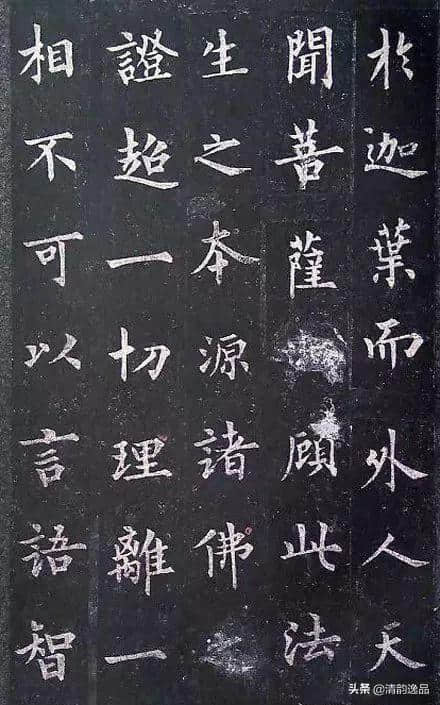 於迦葉而外人天
聞菩薩顧此法
生之本源諸佛之
證超一切理離一
相不可以言語智
头条 @清韵逸品